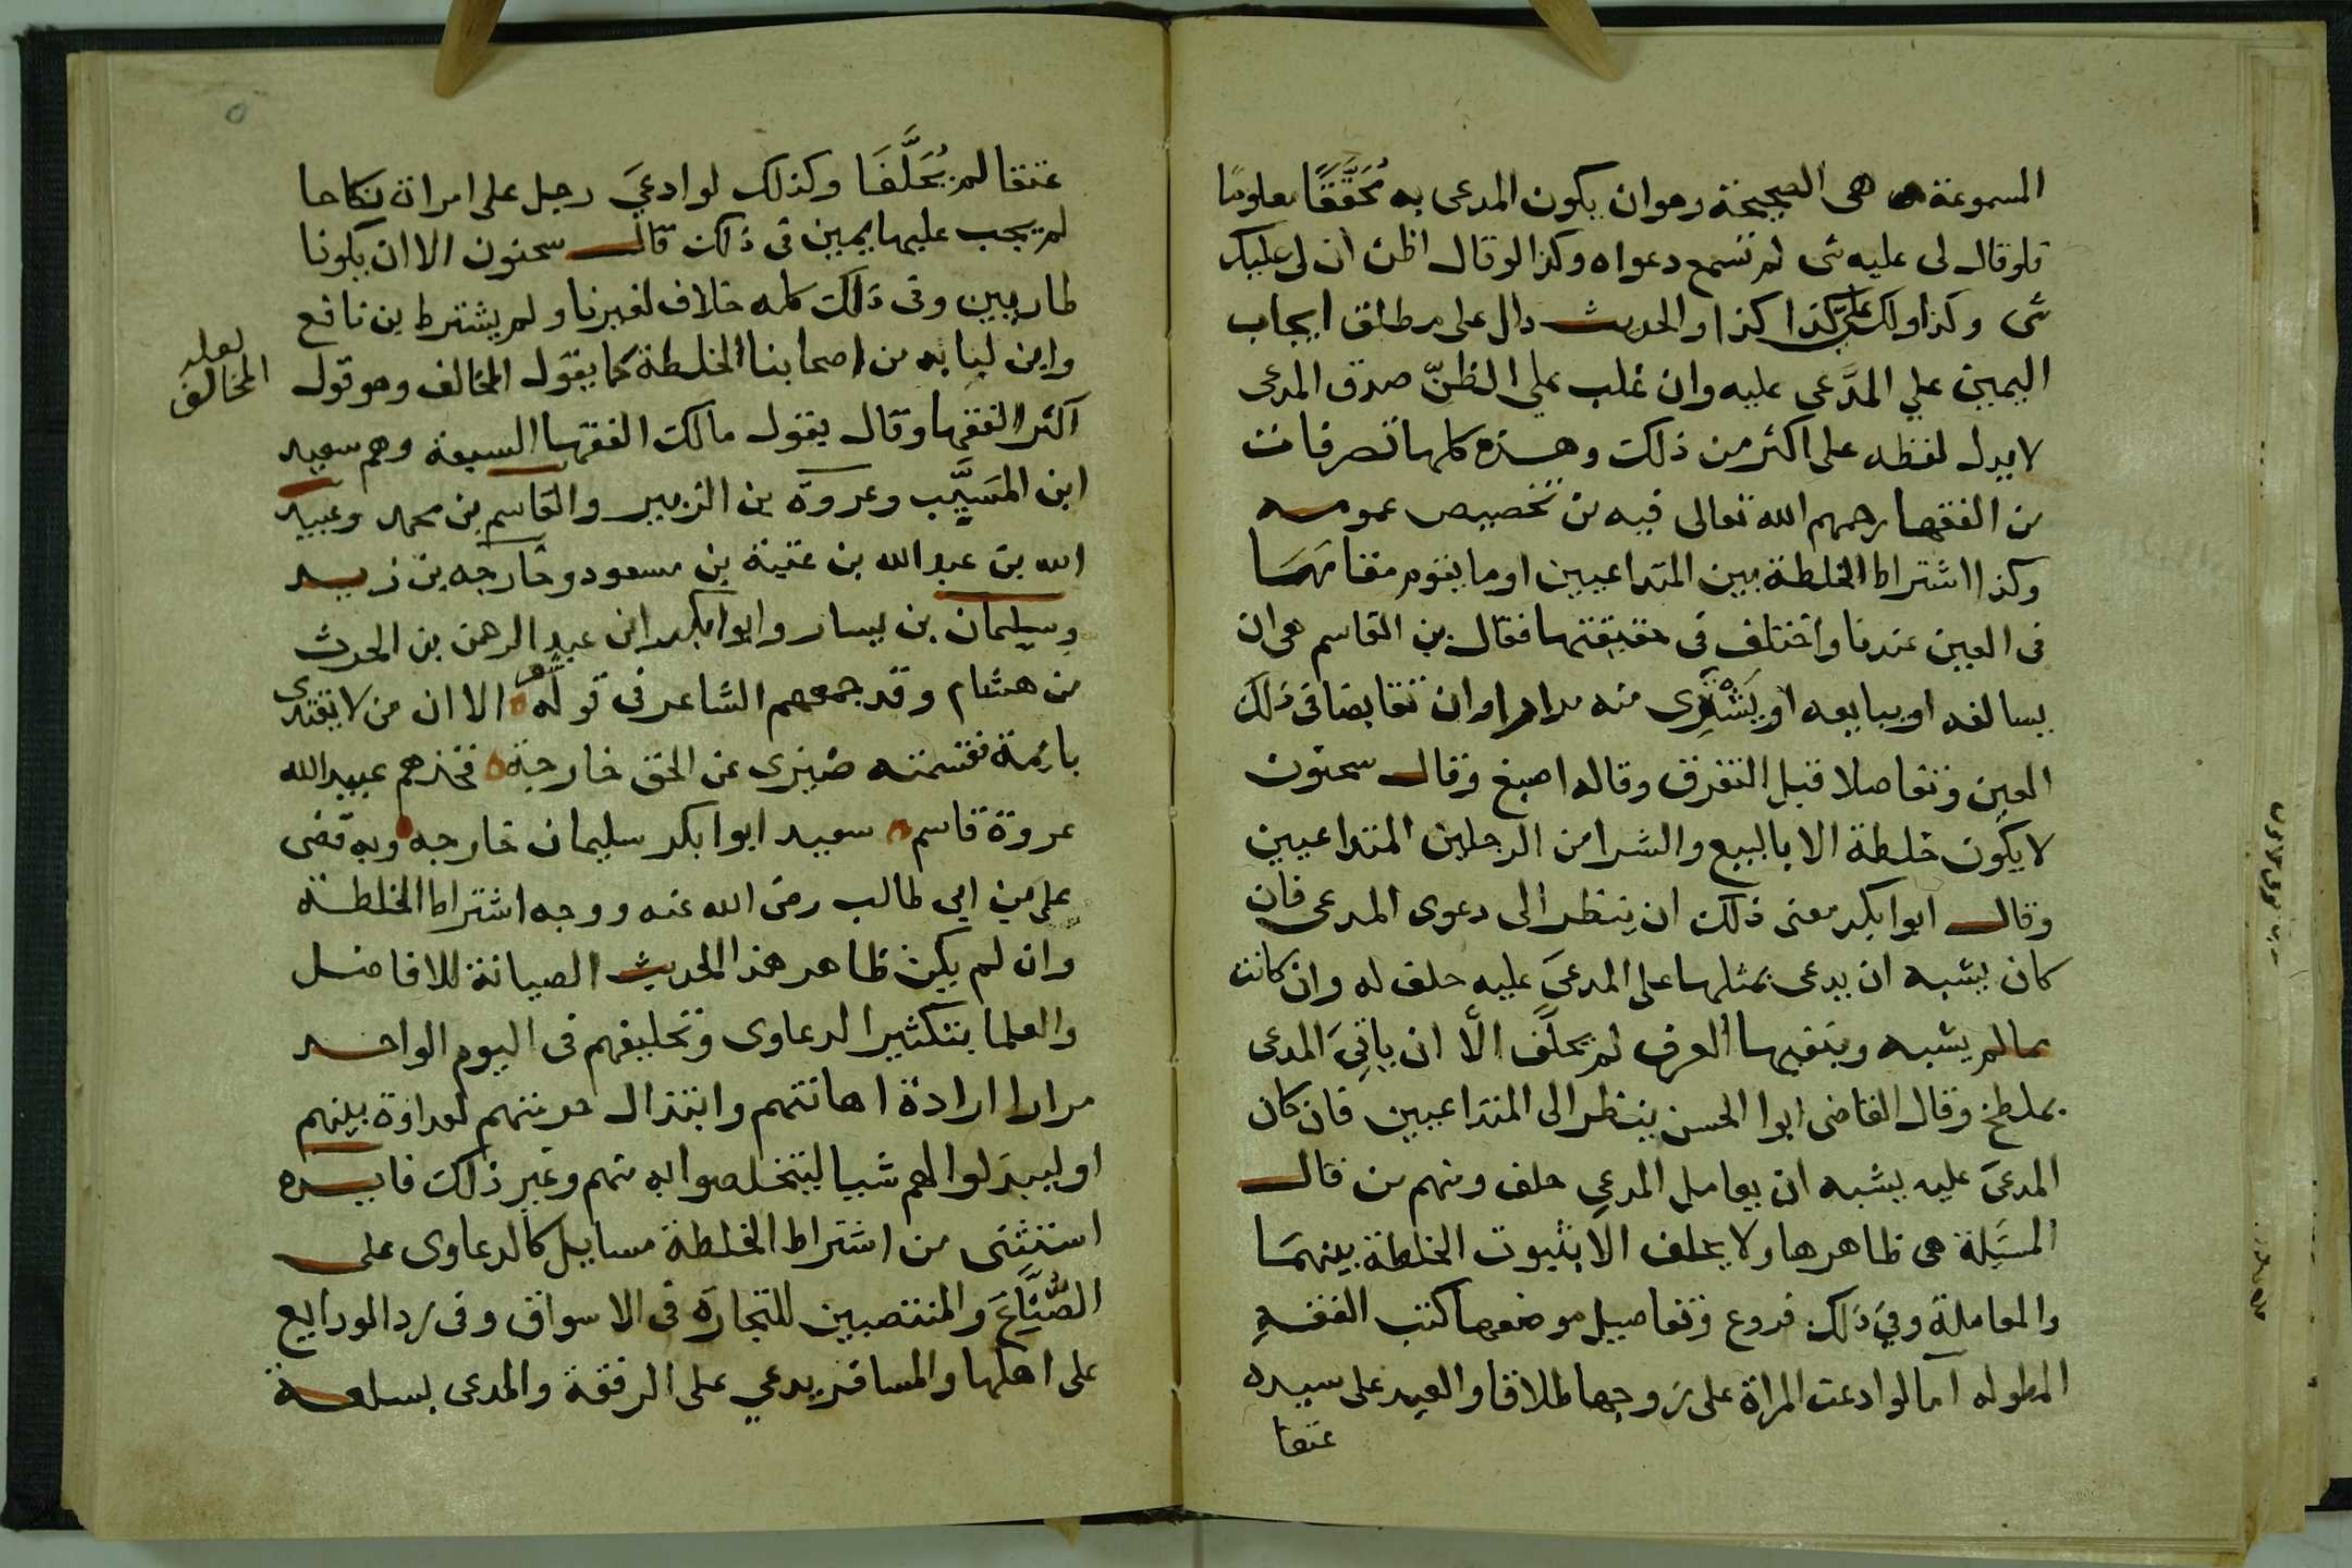 المسموعة هى الصحيحة وهوان يكون المدعى به مُحَقَّقًا معلومًا
فلوقال لى عليه شى لم تسمع دعواه وكذا لوقال اظن ان لى عليك
شى وكذا ولك علىّ كذا كذا والحديث دال على مطلق ايجاب
اليمين علي المدَّعى عليه وان غلب علي الظنّ صدق المدعى
لا يدل لفظه على اكثر من ذلك وهذه كلها تصرفات
من الفقها رحمهم الله تعالى فيه من تخصيص عمومه
وكذا اشتراط الخلطة بين المتداعيين اوما يقوم مقامهما
فى العين عندنا واختلف فى حقيقتها فقال بن القاسم هى ان
يسالفه او يبايعه او يَشْتَرِى منه مرارا وان تقابضا فى ذلك
العين وتفاصلا قبل التفرق وقاله اصبغ وقال سحنون
لا يكون خلطة الا بالبيع والشرا من الرجلين المتداعيين
وقال ابوا بكر معنى ذلك ان ينظر الى دعوى المدعى فان
كان يشبه ان يدعى بمثلها على المدعىَ عليه حلف له وان كانت
مما لم يشبه وينفيها العرف لم يحلَّف الّا ان ياتِىَ المدعى
بملطخ وقال القاضى ابوا الحسن ينظر الى المتداعيين فان كان
المدعىَ عليه يشبه ان يعامل المدعىِ حلف ومنهم من قال
المسَيلة هى ظاهرها ولا يحلف الا بثبوت الخلطة بينهما
والمعاملة وفي ذلك فروع وتفاصيل موضعها كتب الفقهِ
المطوله اما لو ادعت المراة على زوجها طلاقا والعبد على سيده
عتقا
عتقا لم يُحَلَّفَا وكذلك لو ادعىَ رجل على امراة نكاحا
لم يجب عليها يمين فى ذلك قال سحنون الا ان يكونا
طاريين وفى ذلك كله خلاف لغيرنا ولم يشترط بن نافع
وابن لبابه من اصحابنا الخلطة كما يقول المخالف وهو قول
لعله
المخالف
اكثر الفقها وقال يقول مالك الفقها السبعة وهم سعيد
ابن المسَيَّب وعروة بن الزبير والقاسم بن محمد وعبيد
الله بن عبد الله بن عتبة بن مسعود وخارجه بن زيد
وسليمان بن يسار وابوا بكر ابن عبد الرحمن بن الحرث
من هشام وقد جمعهم الشاعر فى قوله شعر الا ان من لا يقتدى
بائمة فقسمته ضيزى عن الحق خارجة فخذهم عبيد الله
عروة قاسم سعيد ابوا بكر سليمان خارجه وبه قضى
على بن ابي طالب رضى الله عنه ووجه اشتراط الخلطة
وان لم يكن ظاهر هذا الحديث الصيانة للافاضل
والعلما بتكثير الدعاوى وتحليفهم فى اليوم الواحد
مرارا ارادة اهانتهم وابتذال حرمتهم لعداوة بينهم
او ليبذلوا لهم شيا ليتخلصوا به منهم وغير ذلك فايده
استثنى من اشتراط الخلطة مسايل كالدعاوى على
الصُّنَّاعَ والمنتصبين للتجارة فى الاسواق وفى رد الودايع
على اهلها والمسافر يدعي على الرفقة والمدعى بسلعة